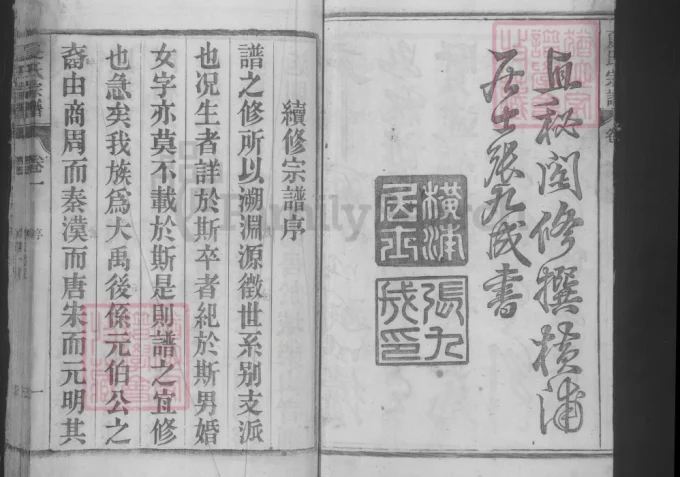 直秘閣修撰橫浦
居士張九成書
橫浦
居士
張九
成印
續修宗譜序
譜之修所以溯淵源徵世系别支派
也况生者詳於斯卒者紀於斯男婚
女字亦莫不載於斯是則譜之宜修
也急矣我族爲大禹後係元伯公之
裔由商周而秦漢而唐宋而元明其
夏氏宗譜
卷一
序
一